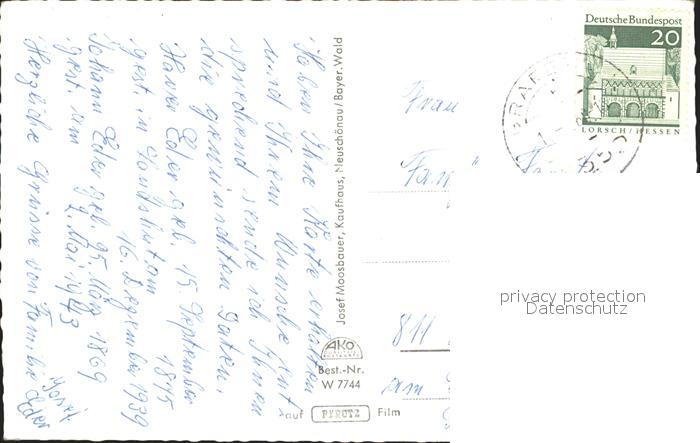 Haben Ihre Karte erhalten
und Ihrem Wunsche ent
sprechend sende ich Ihnen
die gewünschten Daten.
Xaver Eder geb. 15. September
1875
gest. in Landshut am
16. Dezember 1939
Johann Eder geb. 25. März 1869
gest. am 2. Mai 1943
Herzliche Grüsse von Familie
Josef Eder
Josef Moosbauer, Kaufhaus, Neuschönau/Bayer. Wald
AKO
Best.-Nr.
W 7744
auf PERUTZ Film
Deutsche Bundespost
20
LORSCH/HESSEN
Frau
811
am
privacy protection
Datenschutz